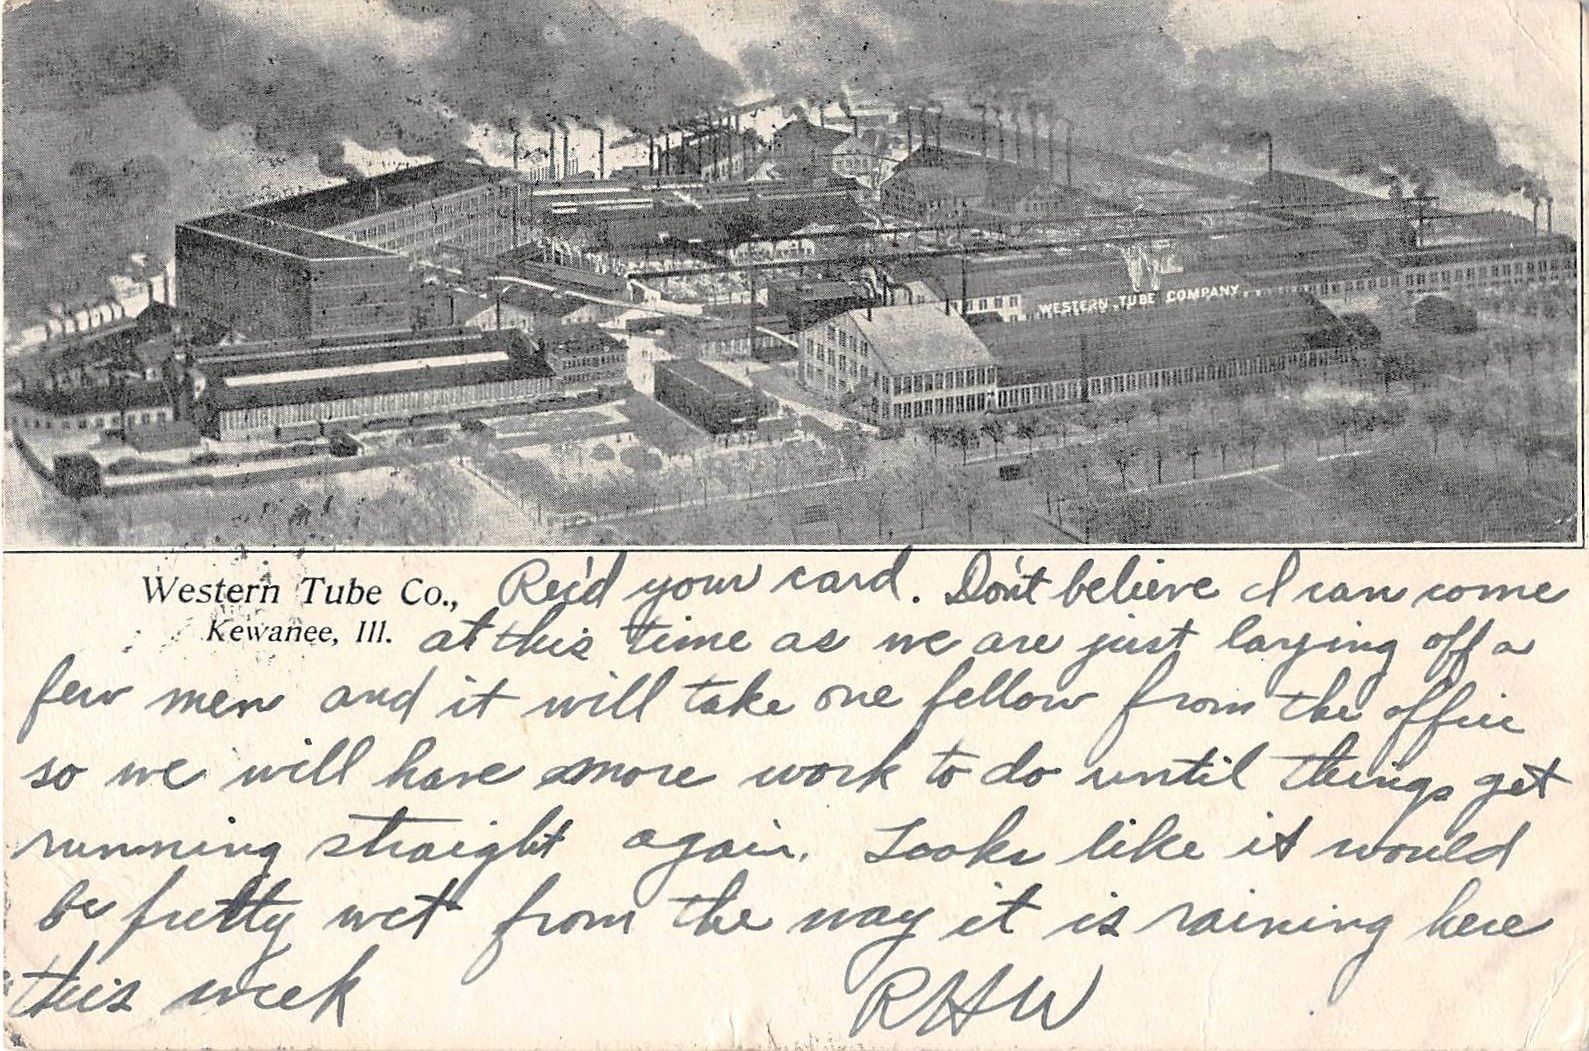 WESTERN TUBE COMPANY
Western Tube Co.,
Kewanee, Ill.
Rec'd your card. Don't believe I can come
at this time as we are just laying off a
few men and it will take one fellow from the office
so we will have more work to do until things get
running straight again. Looks like it would
be pretty wet from the way it is raining here
this week
RHW